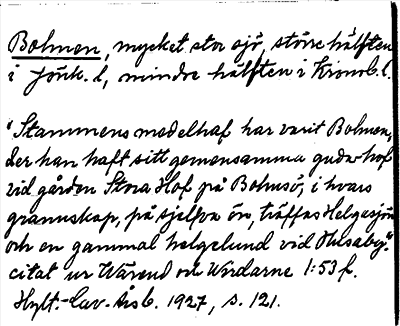 Bolmen, mycket stor sjö, större hälften
i Jönk. l., mindre hälften i Kronob. l.
"Stammens medelhaf har varit Bolmen,
der han haft sitt gemensamma gudahof
vid gården Stora Hof på Bolmsö, i hvars
grannskap, på sjelfva ön, träffas Helgesjön
och en gammal helgelund vid Husaby."
citat ur Wärend och Wirdarne 1:53 f.
Hylt.-Cav. Årsb. 1927, s. 121.